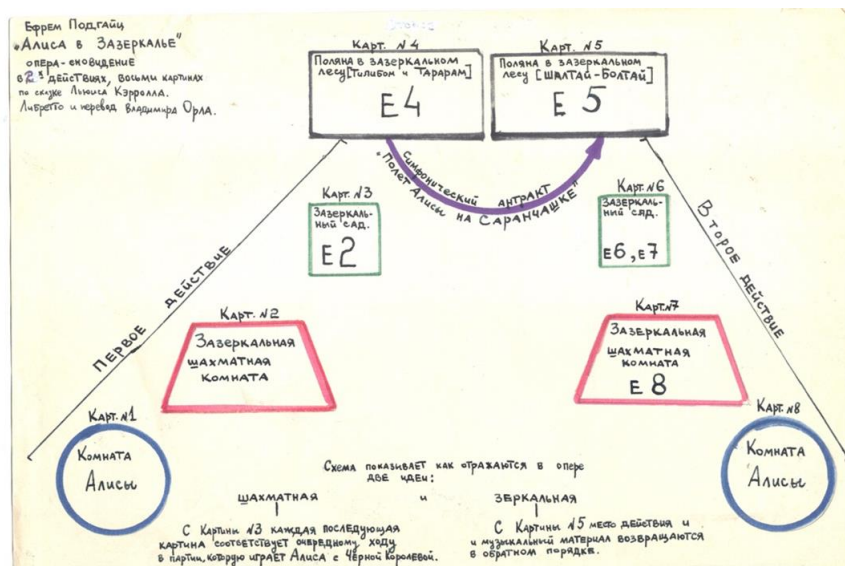 Ефрем Подгайц
"Алиса в Зазеркалье"
опера-сновидение
в 2х действиях, восьми картинах
по сказке Льюиса Кэрролла.
Либретто и перевод Владимира Орла.
Карт. №4
Поляна в зазеркальном
лесу [Тилибом и Тарарам]
Е4
Карт. №5
Поляна в зазеркальном
лесу [Шалтай-Болтай]
Е 5
Симфонический антракт
"Полет Алисы на Саранчашке"
Карт. №3
Зазеркаль-
ный сад.
Е2
Карт. №6
Зазеркаль-
ный сад.
Е6, Е7
Первое действие
Второе действие
Карт. №2
Зазеркальная
шахматная
комната
Карт. №7
Зазеркальная
шахматная
комната
Е 8
Карт. №1
Комната
Алисы
Карт. №8
Комната
Алисы
Схема показывает как отражаются в опере
две идеи:
шахматная и зеркальная
С Картины №3 каждая последующая
картина соответствует очередному ходу
в партии, которую играет Алиса с Чёрной Королевой.
С Картины №5 место действия и
и музыкальный материал возвращаются
в обратном порядке.